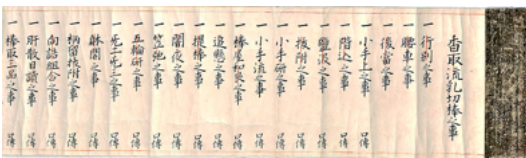 香取流乳切棒之事
一 行別之事
一 腰車之事
一 後當之事
一 小手上之事 口傳
一 階込之事 口傳
一 之事 口傳
一 抜附之事 口傳
一 小手砕之事 口傳
一 小手流之事 口傳
一 棒之事 口傳
一 追懸之事 口傳
一 提棒之事 口傳
一 闇夜之事 口傳
一 笠弛之事 口傳
一 五輪砕之事 口傳
一 二三之事 口傳
一 躰闇之事 口傳
一 柄留抜附之事 口傳
一 向詰組合之事 口傳
一 肝散目之事 口傳
一 棒取三品之事 口傳